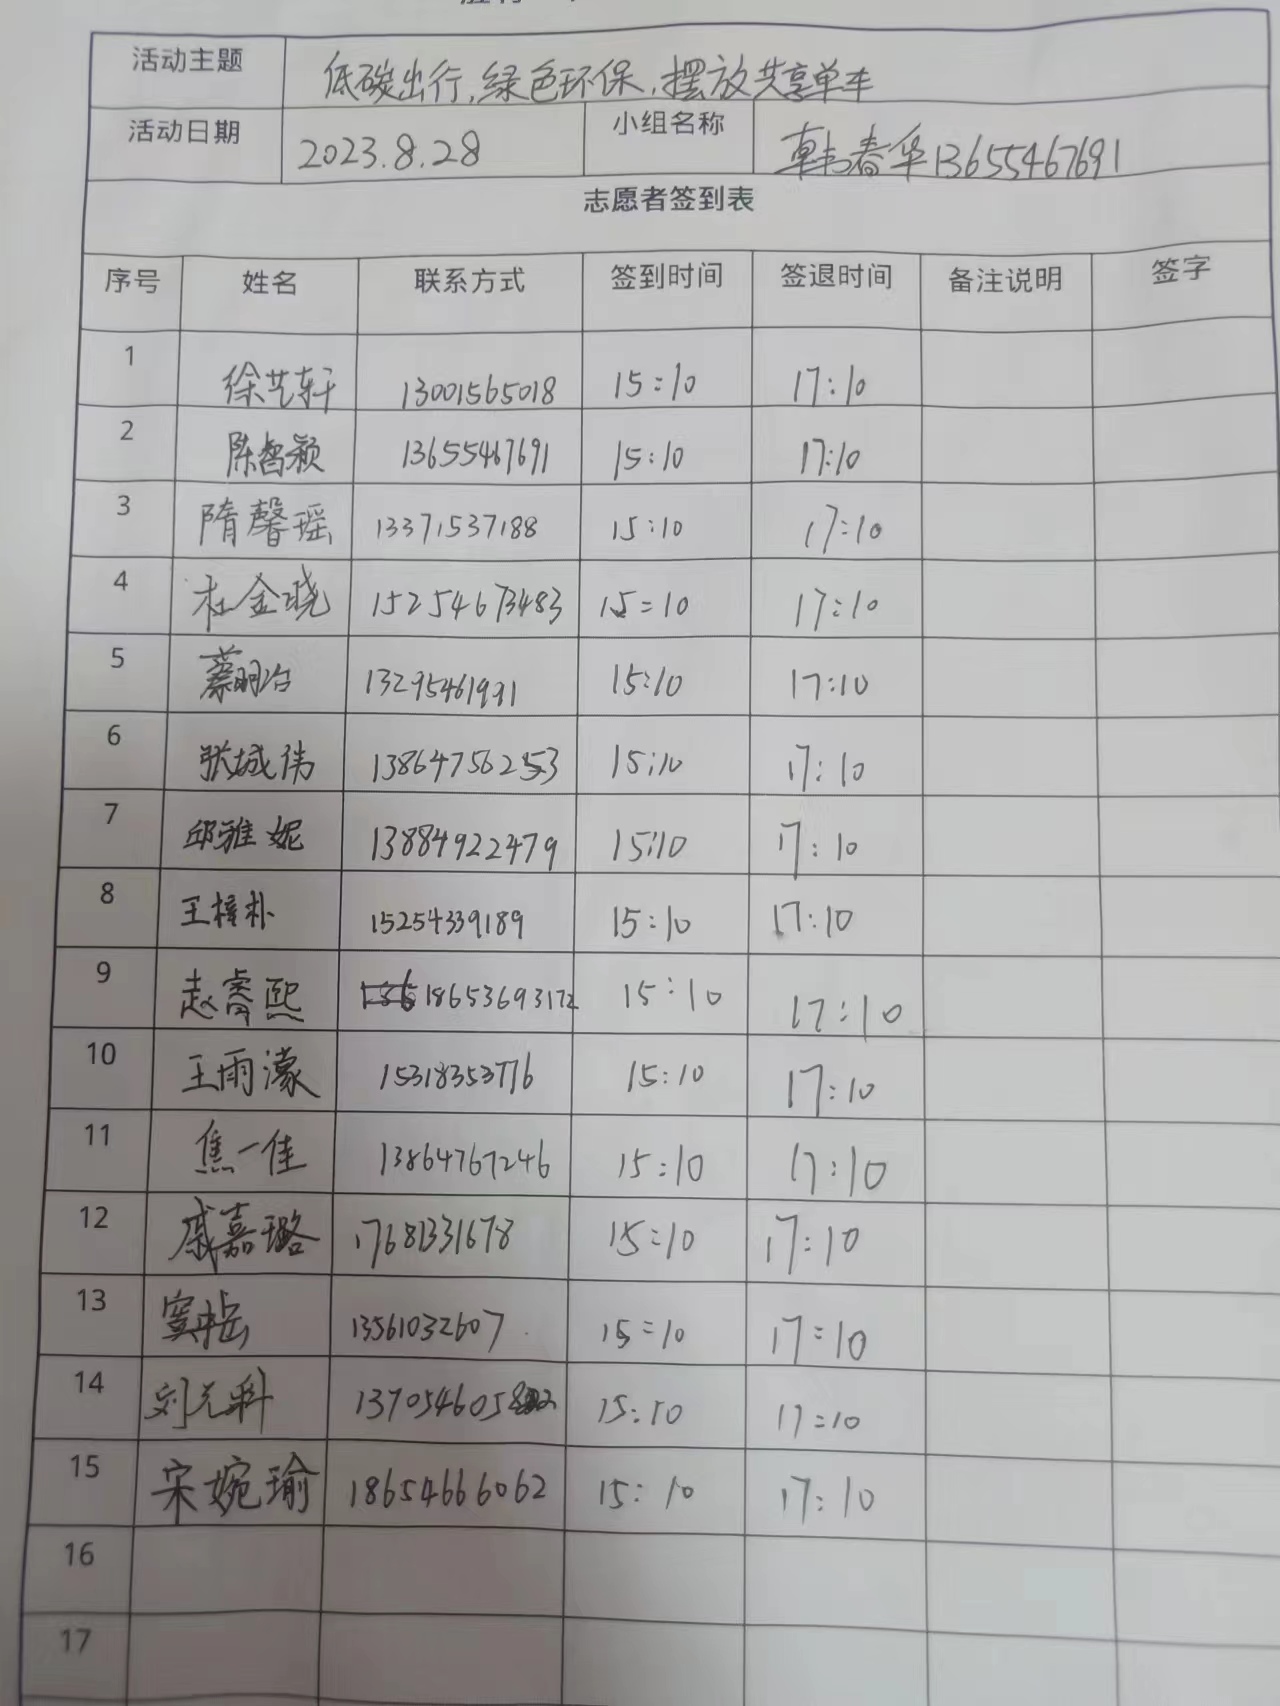 活动主题 低碳出行,绿色环保,摆放共享单车
活动日期 2023.8.28 小组名称 韩春华13655467691
志愿者签到表
序号 姓名 联系方式 签到时间 签退时间 备注说明 签字
1 徐艺轩 13001565018 15:10 17:10
2 陈智颖 13655467691 15:10 17:10
3 隋馨瑶 13371537188 15:10 17:10
4 杜金晓 15254673483 15:10 17:10
5 蔡明冶 13295461991 15:10 17:10
6 张城伟 13864756253 15:10 17:10
7 邱雅妮 13884922479 15:10 17:10
8 王梓朴 15254339189 15:10 17:10
9 赵睿熙 18653693172 15:10 17:10
10 王雨濛 15318353776 15:10 17:10
11 焦一佳 13864767246 15:10 17:10
12 戚嘉璐 17681331678 15:10 17:10
13 13561032607 15:10 17:10
14 15:10 17:10
15 宋婉瑜 18654666062 15:10 17:10
16
17